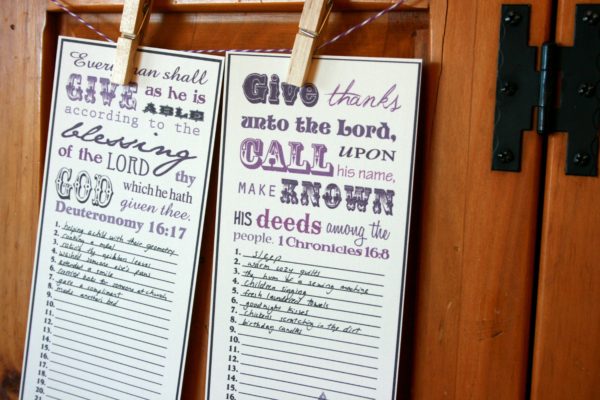 Every man shall
GIVE as he is
ABLE
according to the
blessing
of the LORD thy
GOD which he hath
given thee.
Deuteronomy 16:17
1. helping a child with their geometry
2. cooking a meal
3. raking my neighbors leaves
4. washed someone else's pans
5. extended a smile
6. carried bags for someone at church
7. gave a compliment
8. made another's bed
9.
10.
11.
12.
13.
14.
15.
16.
17.
18.
19.
20.
21.
Give thanks
unto the Lord,
CALL UPON
his name,
MAKE KNOWN
HIS deeds among the
people. 1 Chronicles 16:8
1. sleep
2. warm cozy quilts
3. the hum of a sewing machine
4. children singing
5. fresh laundered towels
6. goodnight kisses
7. chickens scratching in the dirt
8. birthday candles
9.
10.
11.
12.
13.
14.
15.
16.